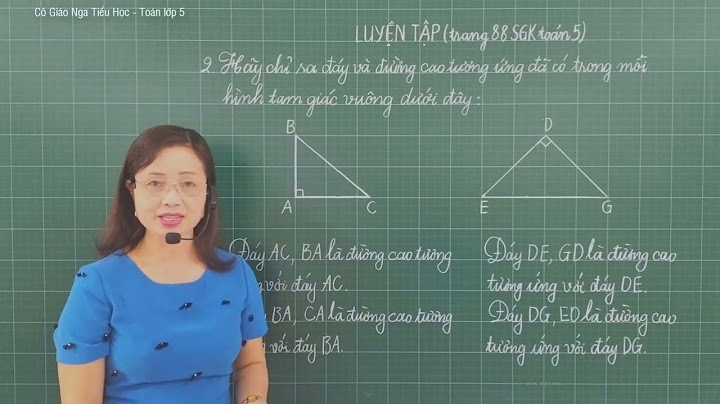 Cô Giáo Nga Tiểu Học - Toán lớp 5
LUYỆN TẬP (trang 88 SGK toán 5)
2. Hãy chỉ ra đáy và đường cao tương ứng đã có trong mỗi
hình tam giác vuông dưới đây:
B
A
C
D
E
G
Đáy AC, BA là đường cao tương
với đáy AC.
BA, CA là đường cao tương
với đáy BA.
Đáy DE, GD là đường cao
tương ứng với đáy DE.
Đáy DG, ED là đường cao
tương ứng với đáy DG.